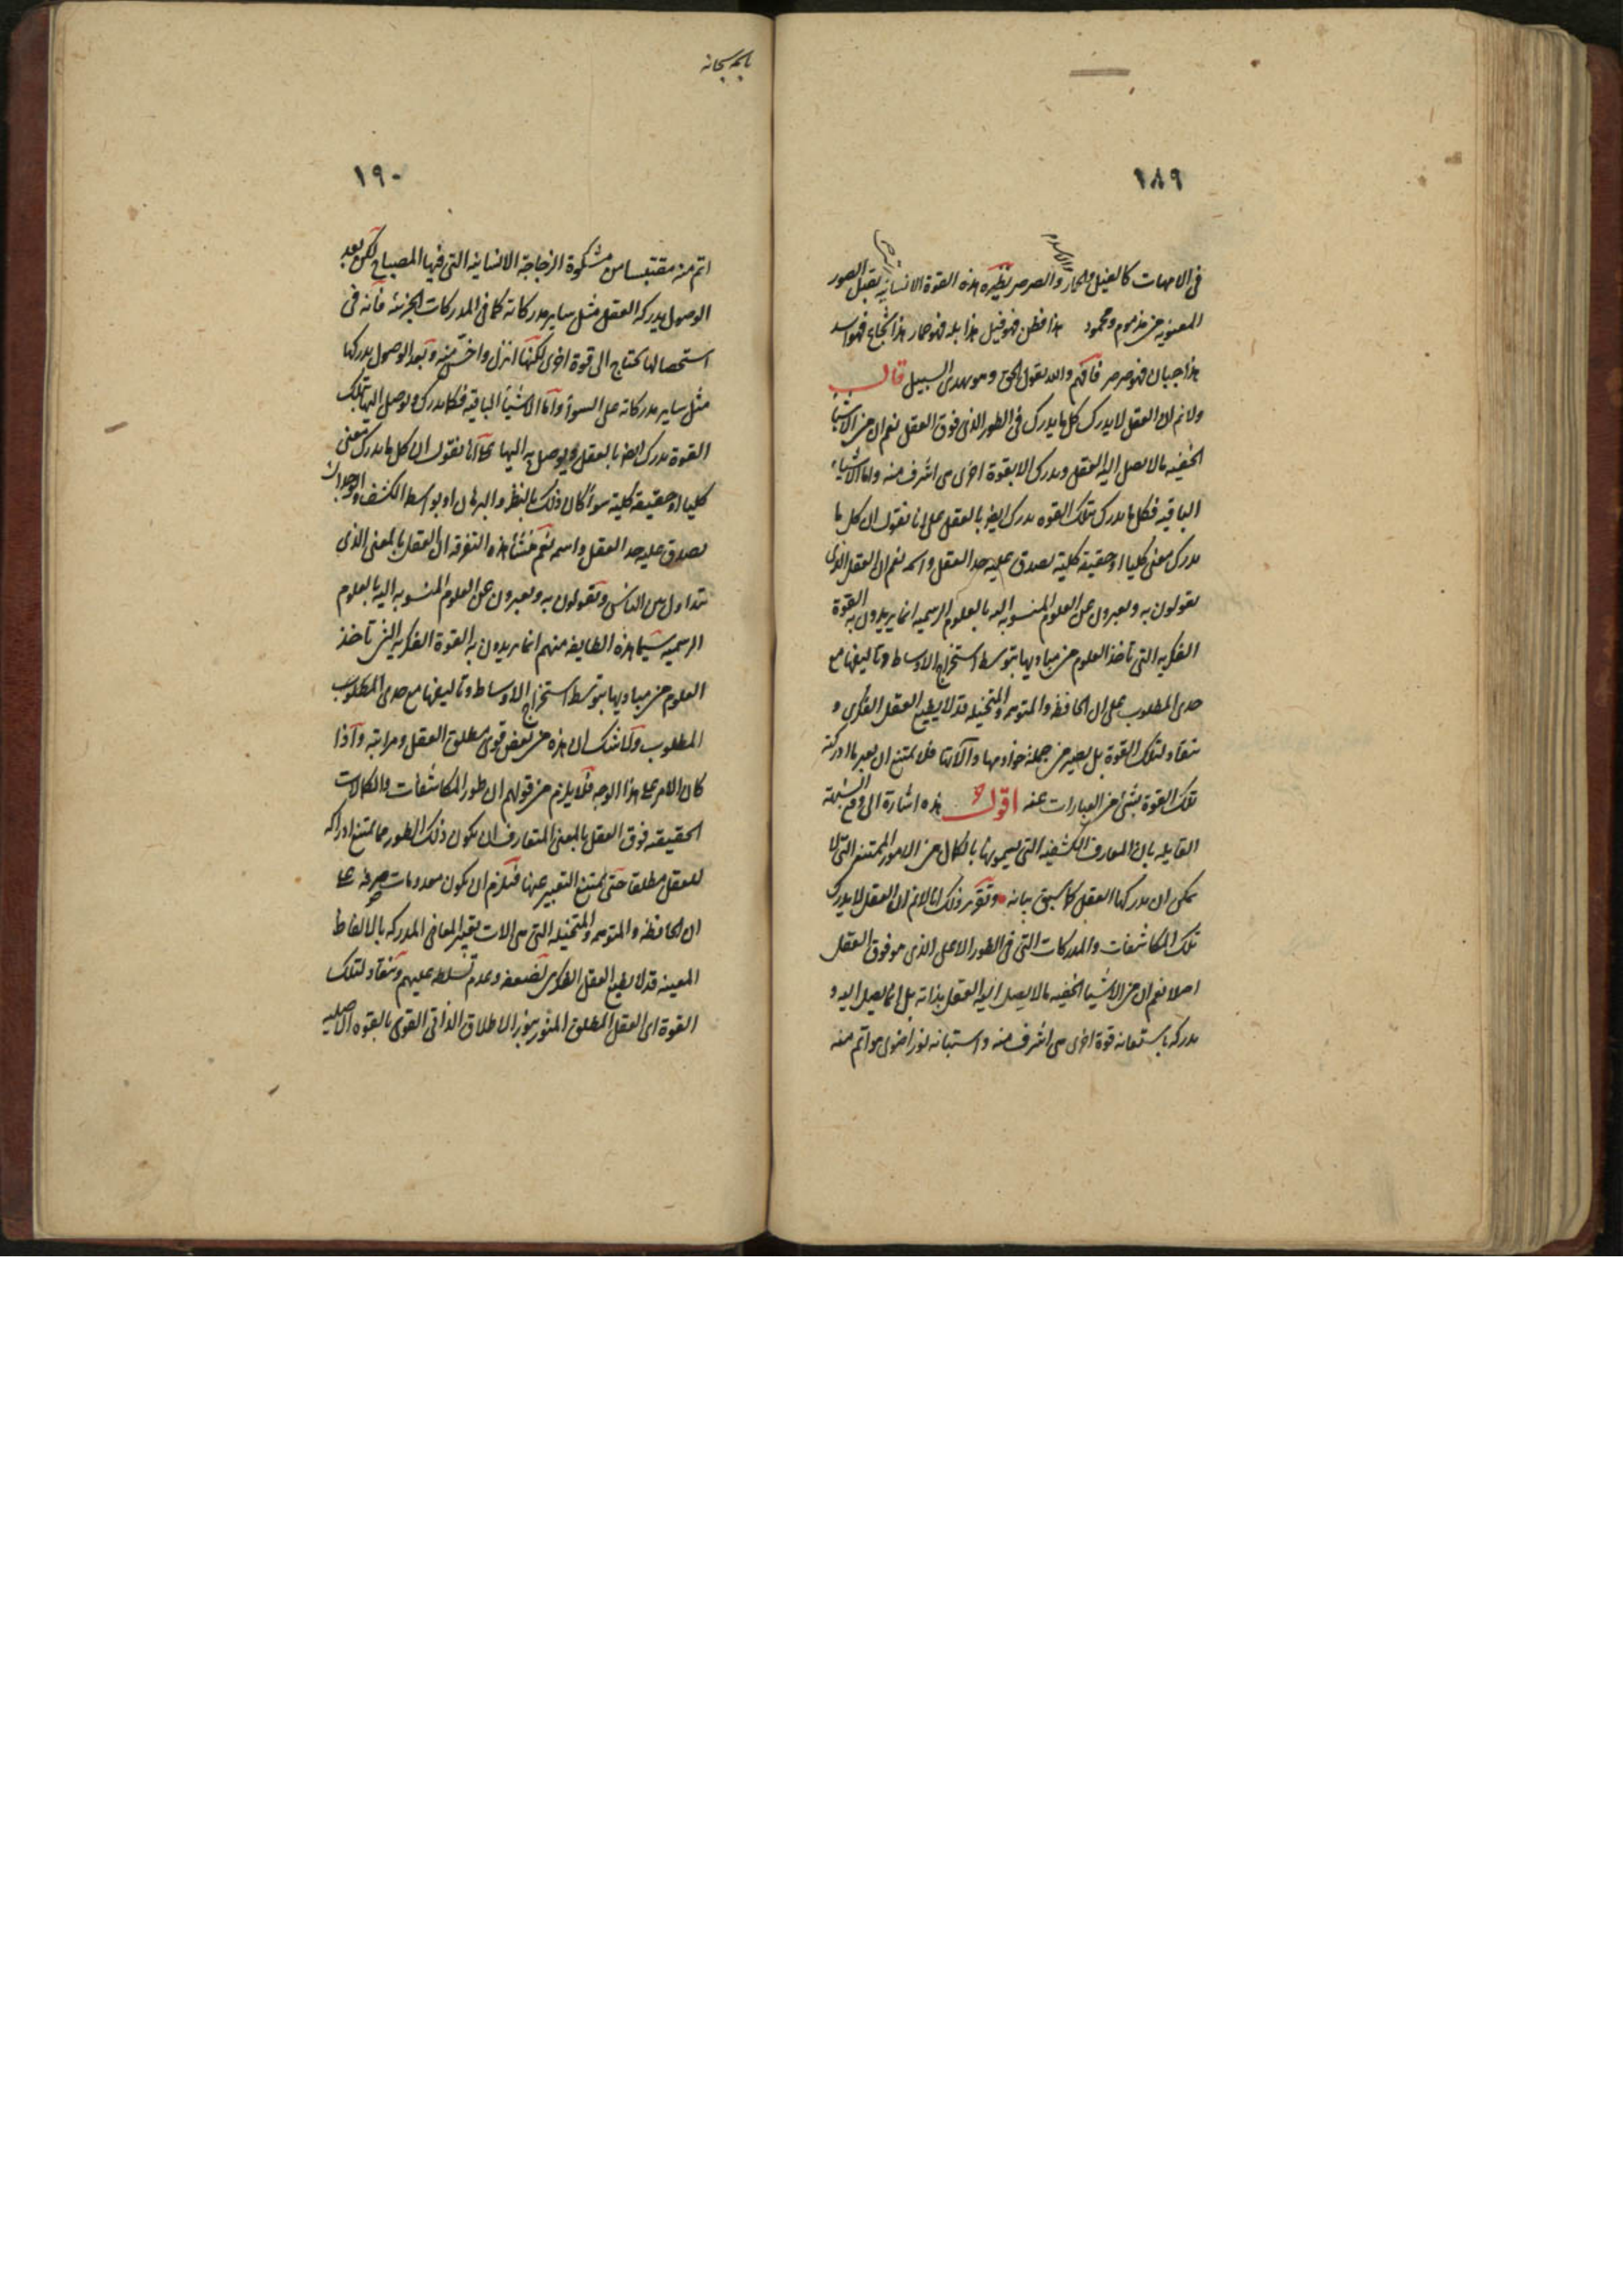 ١٨٩
فى الامهات كالفيل والحمار والاسد والصرصر نظيره هذه القوة الانسانية يقبل الصور
المعنويه من مذموم ومحمود هذا فطن فهو فيل هذا بله فهو حمار هذا شجاع فهو اسد
هذا جبان فهو صرصر فافهم والله يقول الحق وهو يهدى السبيل قال
ولا نم ان العقل لا يدرك كل ما يدرك فى الطور الذى فوق العقل نعم ان من الاشيا
الخفيه ما لا يصل اليه العقل ويدرك الا بقوة اخرى هى اشرف منه واما الاشياء
الباقيه فكل ما يدرك بتلك القوه يدرك ايضا بالعقل على انا نقول ان كل ما
يدرك معنى كليا او حقيقة كلية يصدق عليه حد العقل واسمه نعم ان العقل الذى
يقولون به ويعبرون عن العلوم المنسوبه اليه بالعلوم الرسميه انما يريدون به القوة
الفكريه التى تأخذ العلوم من مباديها بتوسط استخراج الاوساط وتاليفها مع
حدى المطلوب على ان الحافظه والمتوهمه والمتخيله قد لا يطيع العقل الفكرى و
ينقاد لتلك القوة بل يصير من جملة خوادمها وآلاتها فلا يمتنع ان يعبر ما ادركته
تلك القوة بشئ من العبارات عنه اقول هذه اشارة الى دفع الشبهة
القايله بان المعارف الكشفيه التى يسمونها بالكمال من الامور الممتنع التى لا
يمكن ان يدركها العقل كما سبق بيانه وتقرير ذلك انا لا نم ان العقل لا يدرك
تلك المكاشفات والمدركات التى فى الطور الاعلى الذى هو فوق العقل
اصلا نعم ان من الاشيا الخفيه ما لا يصل اليه العقل بذاته بل انما يصل اليه و
يدركه باستعانه قوة اخرى هى اشرف منه واستبانه نور اضوى هو اتم منه
باسمه سبحانه
١٩٠
اتم منه مقتبسا من مشكوة الزجاجة الانسانيه التى فيها المصباح لكن بعد
الوصول يدركه العقل مثل ساير مدركاته كما فى المدركات الجزئيه فانه فى
استحصالها يحتاج الى قوة اخرى لكنها انزل واخس منه وبعد الوصول يدركها
مثل ساير مدركاته على السوأ واما الاشيأ الباقيه فكلما يدرك ويوصل اليها بتلك
القوة يدرك ايضا بالعقل ويوصل به اليها على انا نقول ان كل ما يدرك معنى
كليا او حقيقة كلية سوأ كان ذلك بالنظر والبرهان او بواسطه الكشف والوجدان
يصدق عليه حد العقل واسمه نعم منشأ هذه التفرقه ان العقل بالمعنى الذى
يتداول بين الناس ويقولون به ويعبرون عن العلوم المنسوبه اليه بالعلوم
الرسميه سيما هذه الطايفه منهم انما يريدون به القوة الفكريه التى تاخذ
العلوم من مباديها بتوسط استخراج الاوساط وتاليفها مع حدى المطلوب
المطلوب ولا شك ان هذه من بعض قوى مطلق العقل ومراتبه واذا
كان الامر على هذا الوجه فلا يلزم من قولهم ان طور المكاشفات والكمالات
الحقيقيه فوق العقل بالمعنى المتعارف ان يكون ذلك الطور مما يمتنع ادراكه
للعقل مطلقا حتى يمتنع التعبير عنها فيلزم ان يكون معدومات صرفه على
ان الحافظه والمتوهمه والمتخيله التى هى الات تعبير المعانى المدركه بالالفاظ
المعينه قد لا يطيع العقل الفكرى لضعفه وعدم تسلطه عليهم وينقاد لتلك
القوة اى العقل المطلق المنور بنور الاطلاق الذاتى القوى بالقوه الاصليه